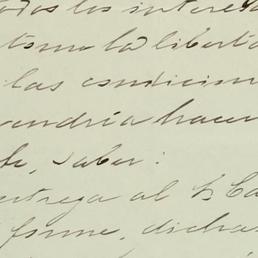 todos los interesa
tomo la liberta
las condicion
vendría hacer
saber:
entrega al
forme, dicha